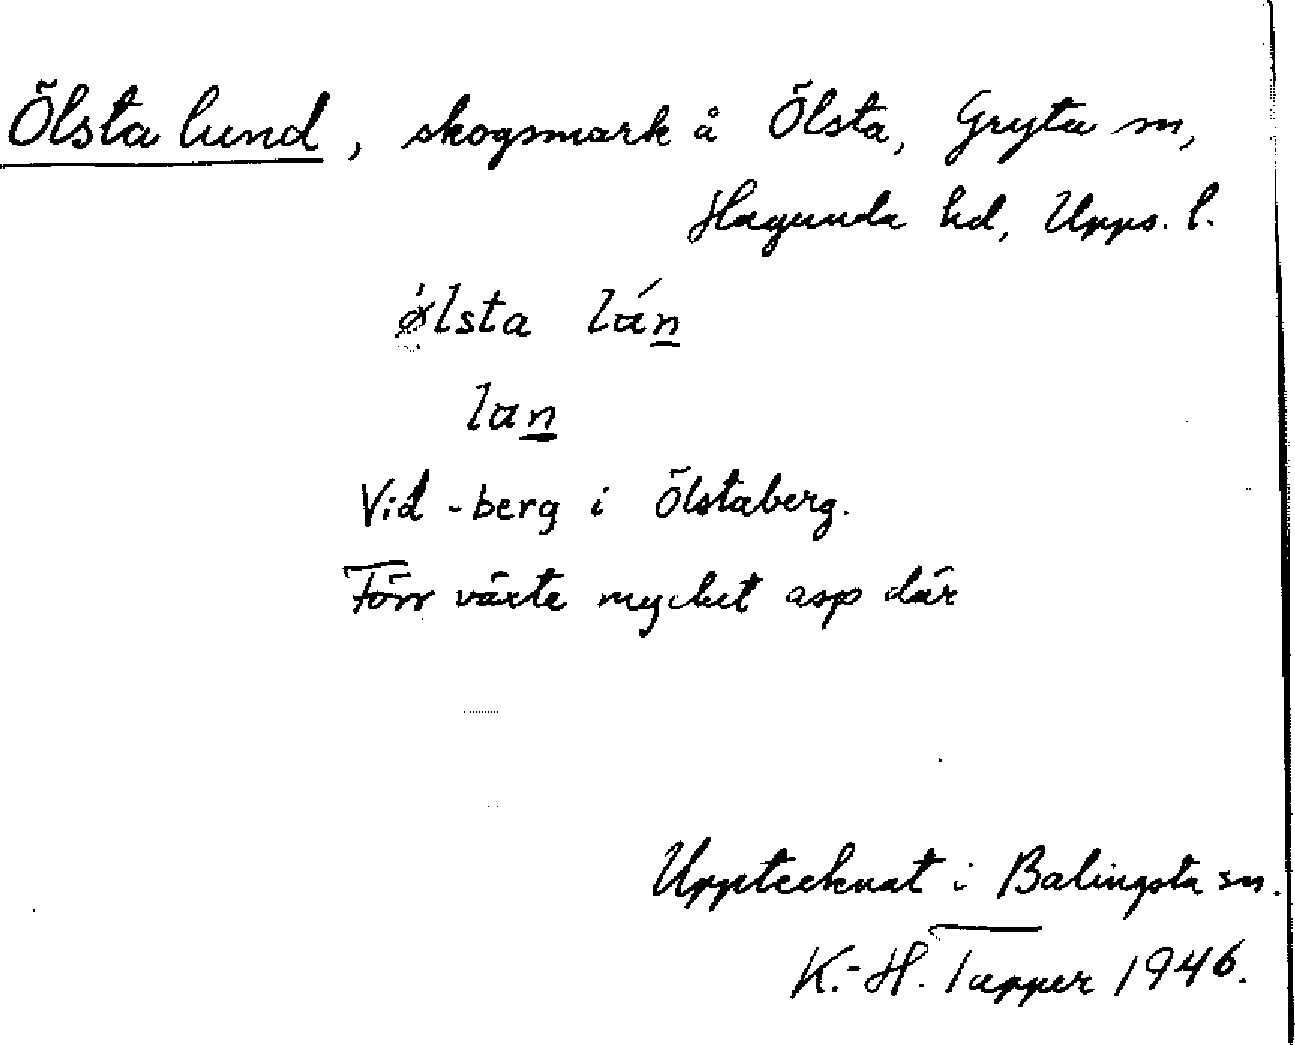 Ölsta lund, skogsmark å Ölsta, Gryta sn,
Hagunda hd, Upps. l.
ǿlsta lán
lan
Vid -berg i Ölstaberg.
Förr växte mycket asp där
Upptecknat i Balingsta sn.
K.-H. Tapper 1946.